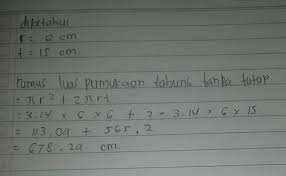 diketahui
r = 6 cm
t = 15 cm.
rumus luas permukaan tabung tanpa tutup
= πr² + 2πrt
= 3.14 × 6 × 6 + 2 × 3.14 × 6 × 15
= 113,04 + 565,2
= 678,24 cm.